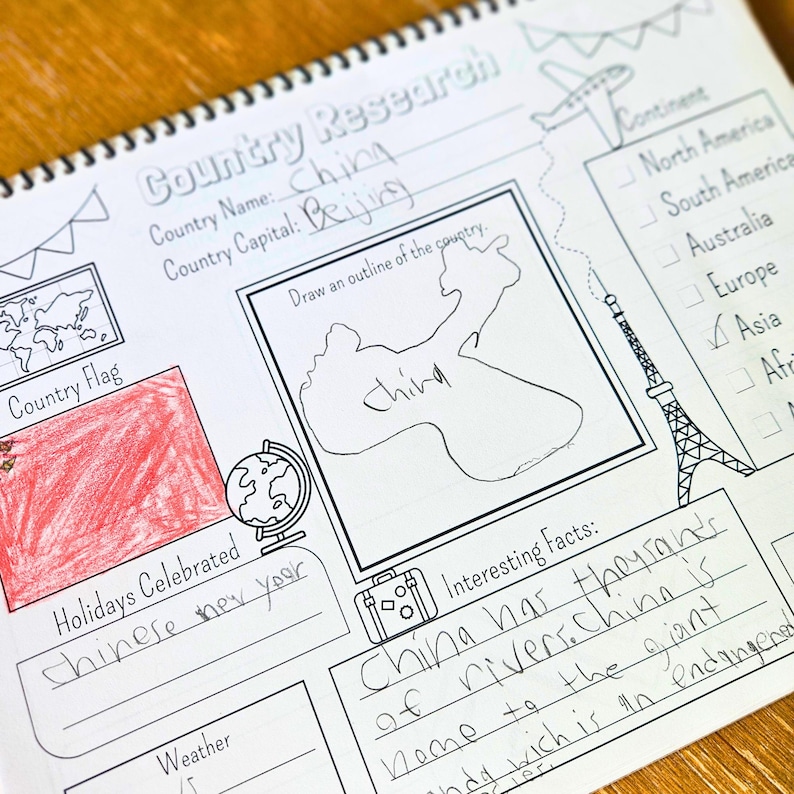 Country Research
Country Name: China
Country Capital: Beijing
Continent
North America
South America
Australia
Europe
Asia
Draw an outline of the country.
China
Country Flag
Holidays Celebrated
Chinese new year
Interesting Facts:
China has thousands
of rivers. China is
name to the giant
wich is an endangered
Weather